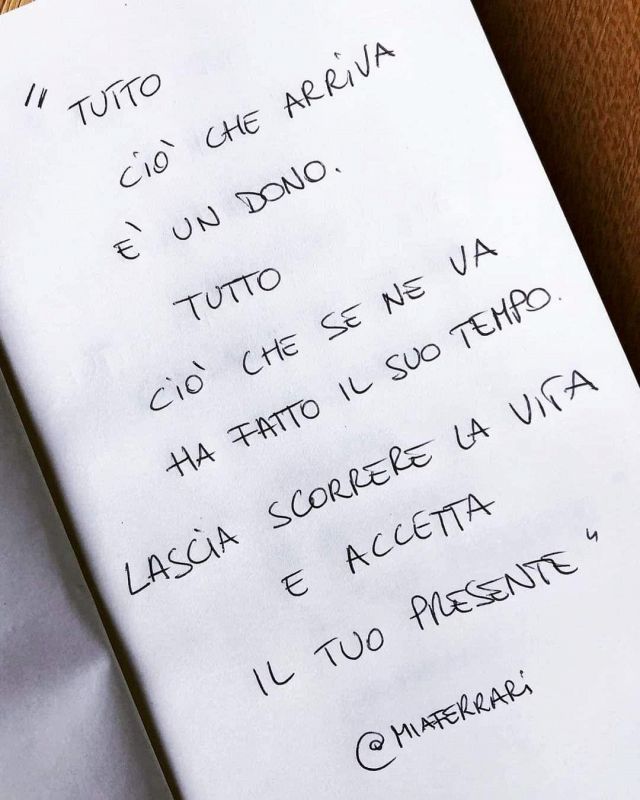 " TUTTO
CIÒ CHE ARRIVA
È UN DONO.
TUTTO
CIÒ CHE SE NE VA
HA FATTO IL SUO TEMPO.
LASCIA SCORRERE LA VITA
E ACCETTA
IL TUO PRESENTE "
@MIAFERRARI